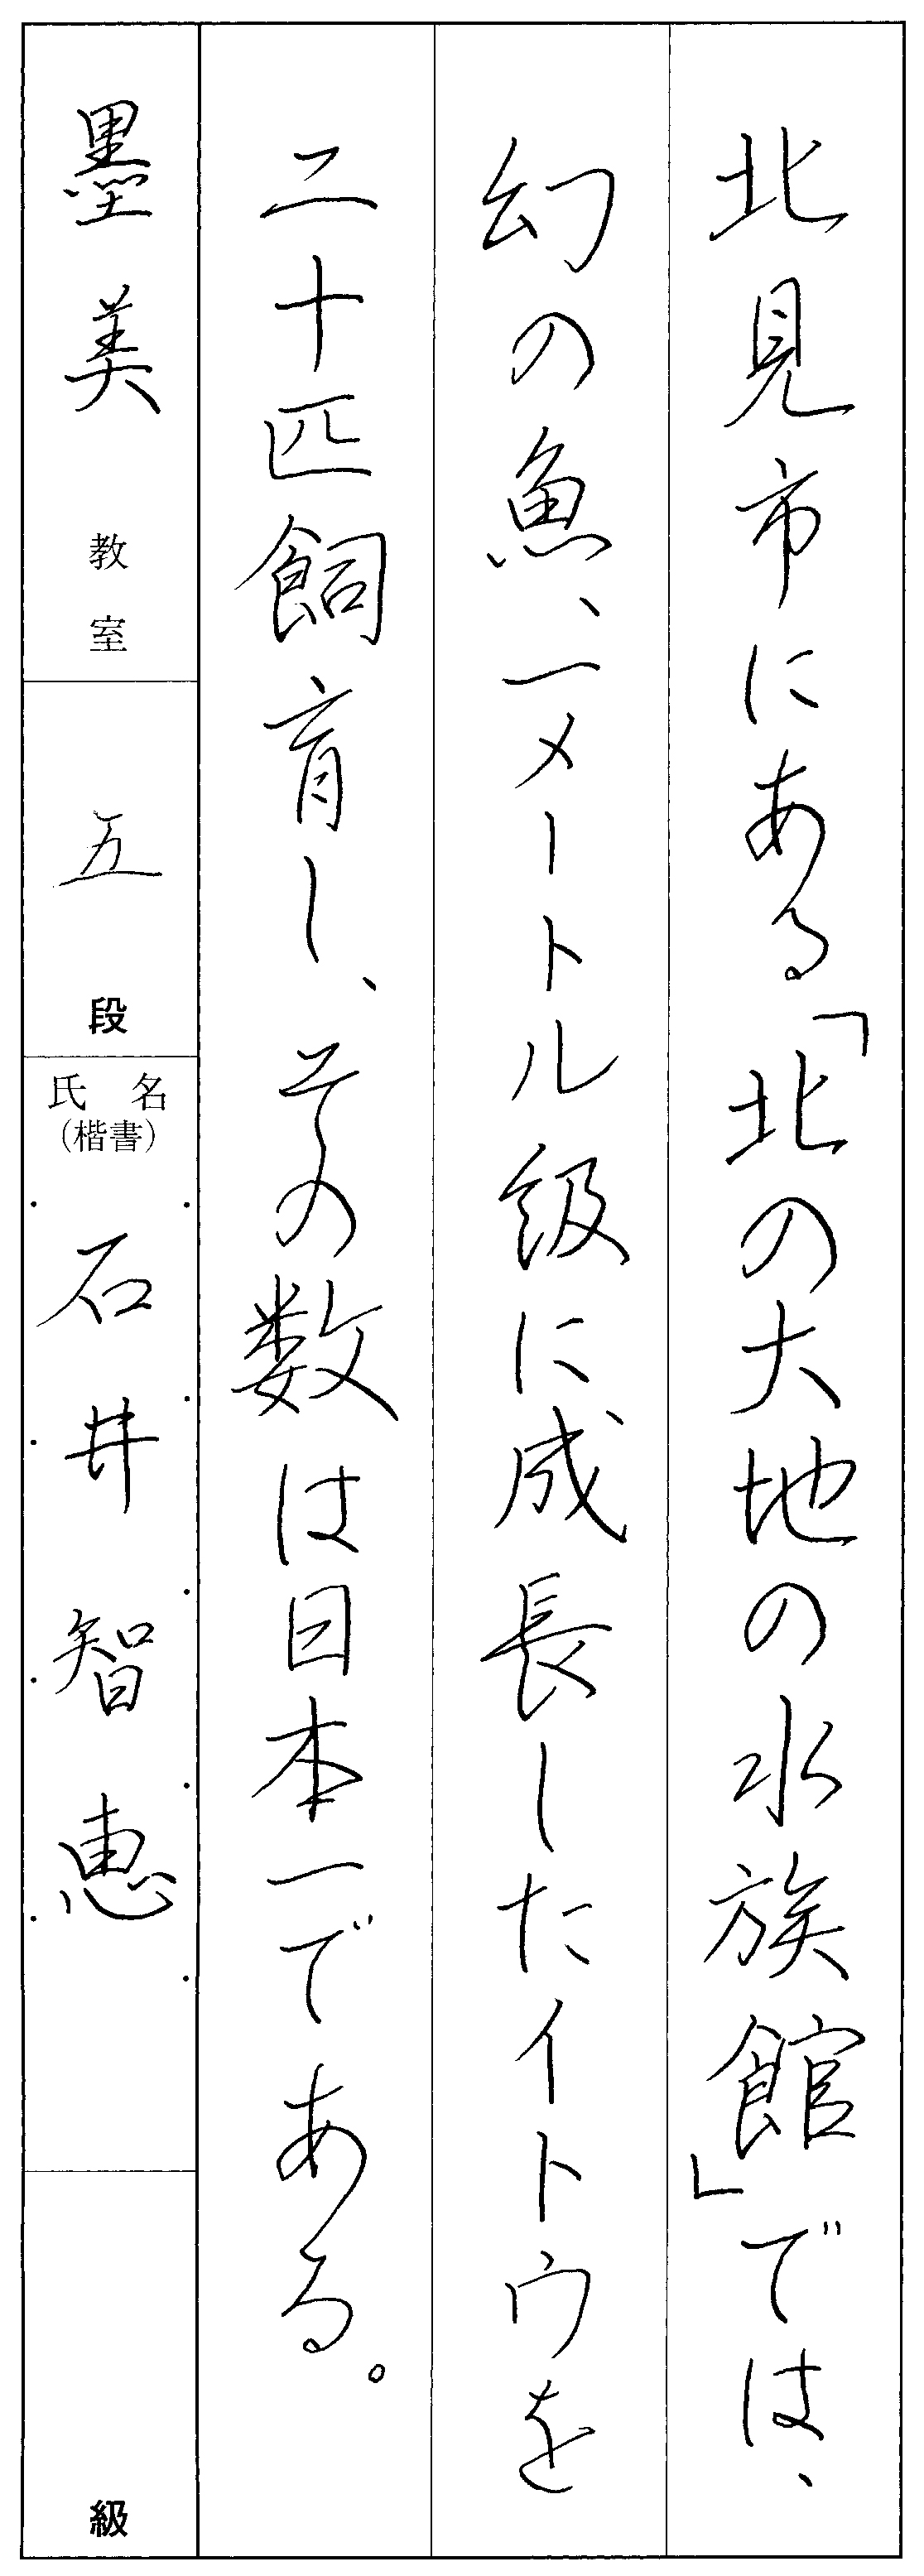 北見市にある「北の大地の水族館」では、
幻の魚、一メートル級に成長したイトウを
二十匹飼育し、その数は日本一である。
墨美教室
五段
氏名
(楷書)
石井智恵
級